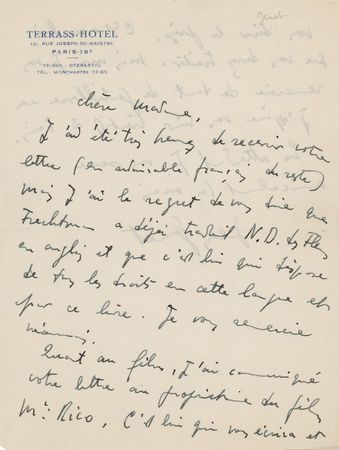 TERRASS-HOTEL
12, RUE JOSEPH-DE-MAISTRE
PARIS-18e
TÉLÉGR : OTERASTEL
TÉL. : MONTMARTRE 72-85
Genet
Chère Madame,
J'ai été très heureux de recevoir votre
lettre (en admirable français du reste)
mais j'ai le regret de vous dire que
Frechtman a déjà traduit N.D. des Fleurs
en anglais et que c'est lui qui dispose
de tous les droits en cette langue et
pour ce livre. Je vous remercie
néanmoins.
Quant au film, j'ai communiqué
votre lettre au propriétaire du film
Mr. Rico, c'est lui qui vous écrira et